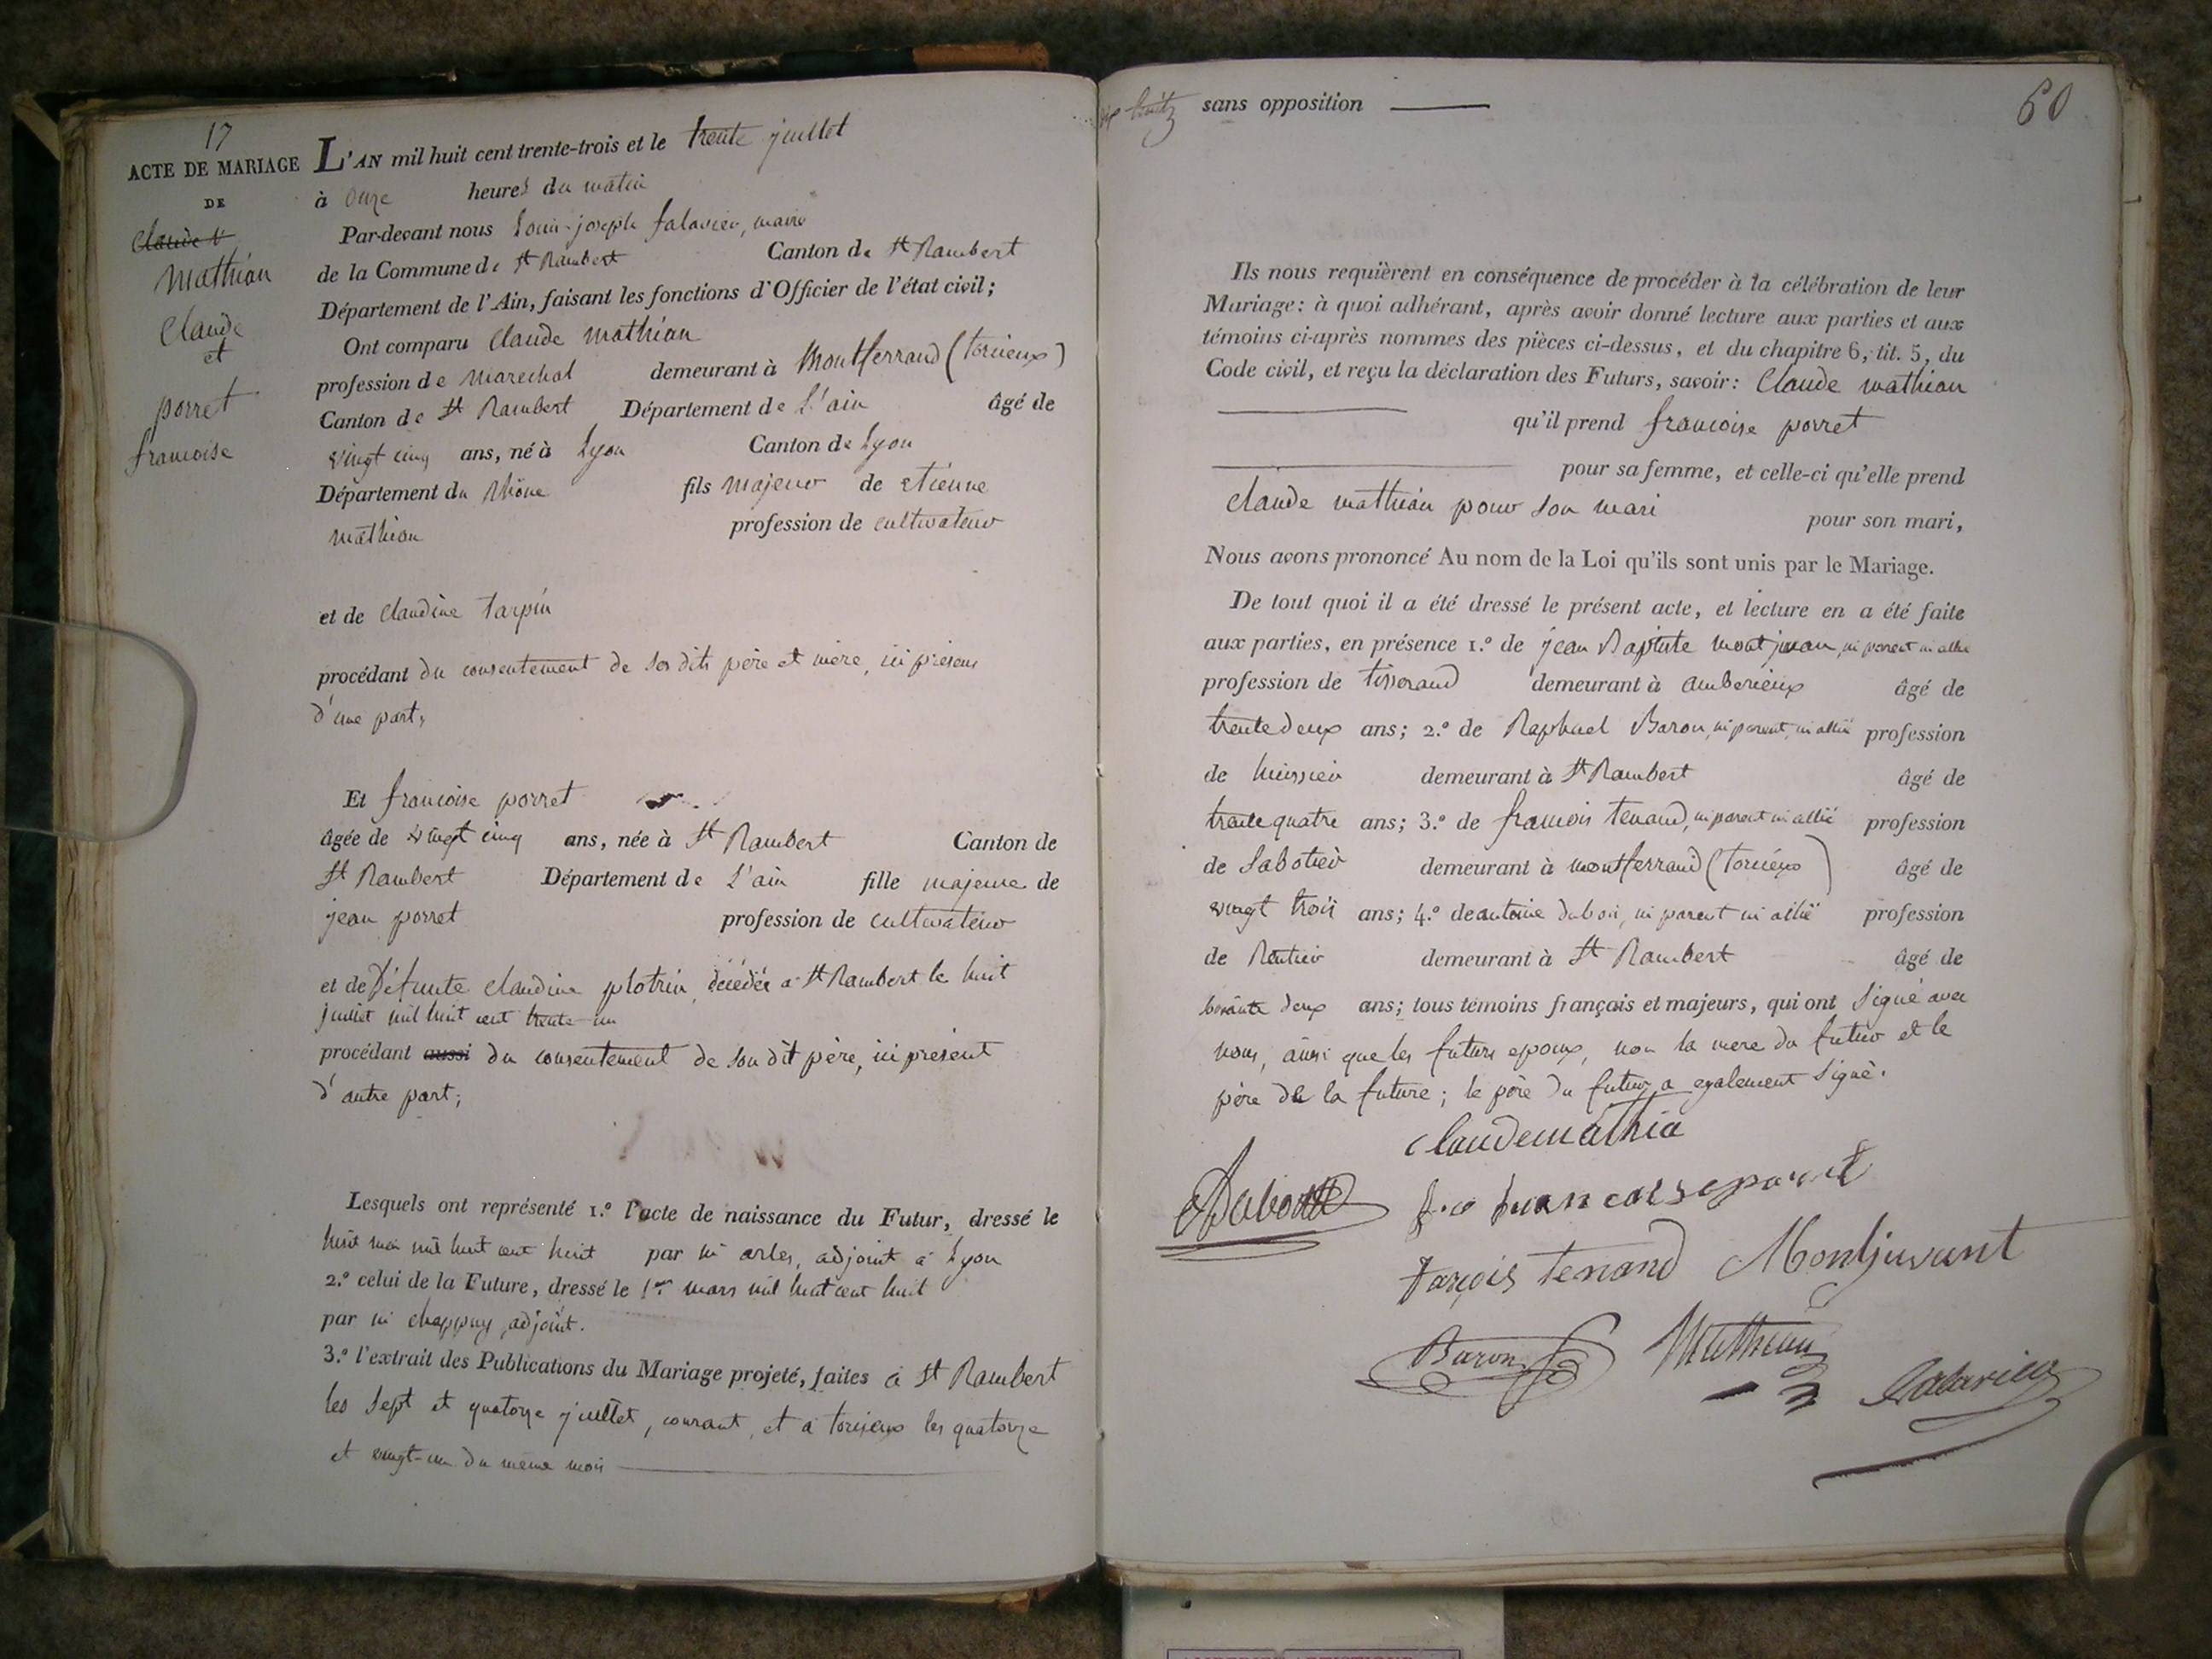 17
ACTE DE MARIAGE
DE
Claude
Mathian
Claude
et
porret
francoise
L'AN mil huit cent trente-trois et le trente juillet
à onze heures du matin
Par-devant nous Louis-joseph falavier, maire
de la Commune de St Rambert Canton de St Rambert
Département de l'Ain, faisant les fonctions d'Officier de l'état civil;
Ont comparu Claude mathian
profession de marechal demeurant à Montferrand (torcieux)
Canton de St Rambert Département de L'ain âgé de
vingt cinq ans, né à Lyon Canton de Lyon
Département du Rhône fils majeur de etienne
mathian profession de cultivateur
et de claudine tarpin
procédant du consentement de ses dits père et mère, ici présens
d'une part,
Et francoise porret
âgée de vingt cinq ans, née à St Rambert Canton de
St Rambert Département de L'ain fille majeure de
jean porret profession de cultivateur
et de Défunte claudine plotrin, décédée à St Rambert le huit
juillet mil huit cent trente-un
procédant aussi du consentement de son dit père, ici présent
d'autre part;
Lesquels ont représenté 1.º l'acte de naissance du Futur, dressé le
huit mai mil huit cent huit par m arles, adjoint à Lyon
2.º celui de la Future, dressé le 1er mars mil huit cent huit
par m chappuy adjoint.
3.º l'extrait des Publications du Mariage projeté, faites à St Rambert
les sept et quatorze juillet, courant, et à torcieux les quatorze
et vingt-un du même mois
60
sans opposition
Ils nous requièrent en conséquence de procéder à la célébration de leur
Mariage: à quoi adhérant, après avoir donné lecture aux parties et aux
témoins ci-après nommes des pièces ci-dessus, et du chapitre 6, tit. 5, du
Code civil, et reçu la déclaration des Futurs, savoir: Claude mathian
qu'il prend francoise porret
pour sa femme, et celle-ci qu'elle prend
claude mathian pour son mari pour son mari,
Nous avons prononcé Au nom de la Loi qu'ils sont unis par le Mariage.
De tout quoi il a été dressé le présent acte, et lecture en a été faite
aux parties, en présence 1.º de jean Baptiste montjuvan, ni parent ni allié
profession de tisserand demeurant à amberieux âgé de
trente deux ans; 2.º de Raphael Baron, ni parent, ni allié profession
de huissier demeurant à St Rambert âgé de
trente quatre ans; 3.º de francois tenand, ni parent ni allié profession
de Sabotier demeurant à montferrand (torcieux) âgé de
vingt trois ans; 4.º de antoine dubois, ni parent ni allié profession
de Rentier demeurant à St Rambert âgé de
soixante deux ans; tous témoins français et majeurs, qui ont signé avec
nous, ainsi que les futurs epoux, non la mere du futur et le
père de la future; le père du futur a egalement signé.
claudemathia
francoiseporret
françois tenand Montjuvant
Baron Mathian
falavier